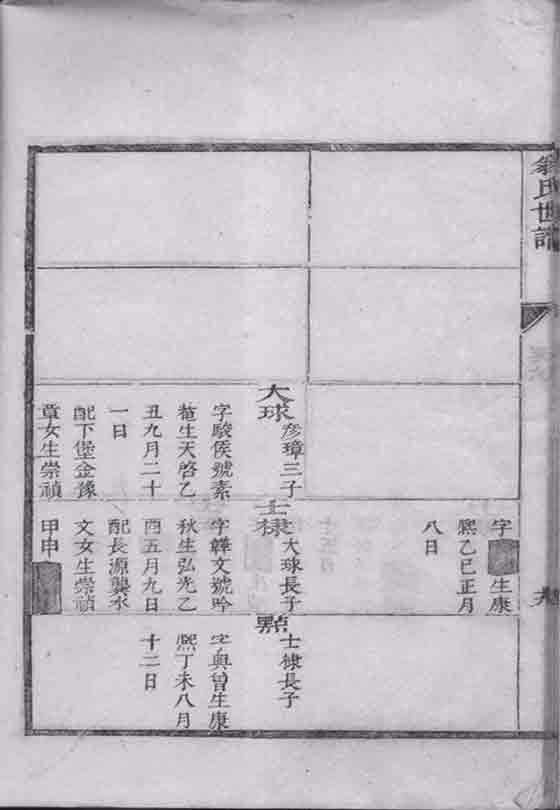 氏世譜
字
生康
熙乙巳正月
八日
大球
彦璋三子
字駿侯號素
菴生天啓乙
丑九月二十
一日
配下堡金豫
章女生崇禎
士棣
大球長子
字韡文號吟
秋生弘光乙
酉五月九日
配長源龔水
文女生崇禎
甲申
點
士棣長子
字與曾生康
熙丁未八月
十二日